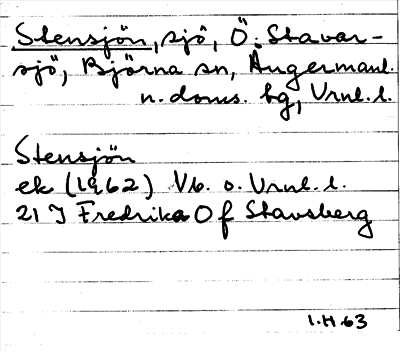 Stensjön, sjö, Ö. Stavar-
sjö, Björna sn, Ångermanl.
n. doms. hg, Vrnl. l.
Stensjön
ek (1962) Vb. o. Vrnl. l.
21 J Fredrika O f Stavsberg
I.H.63